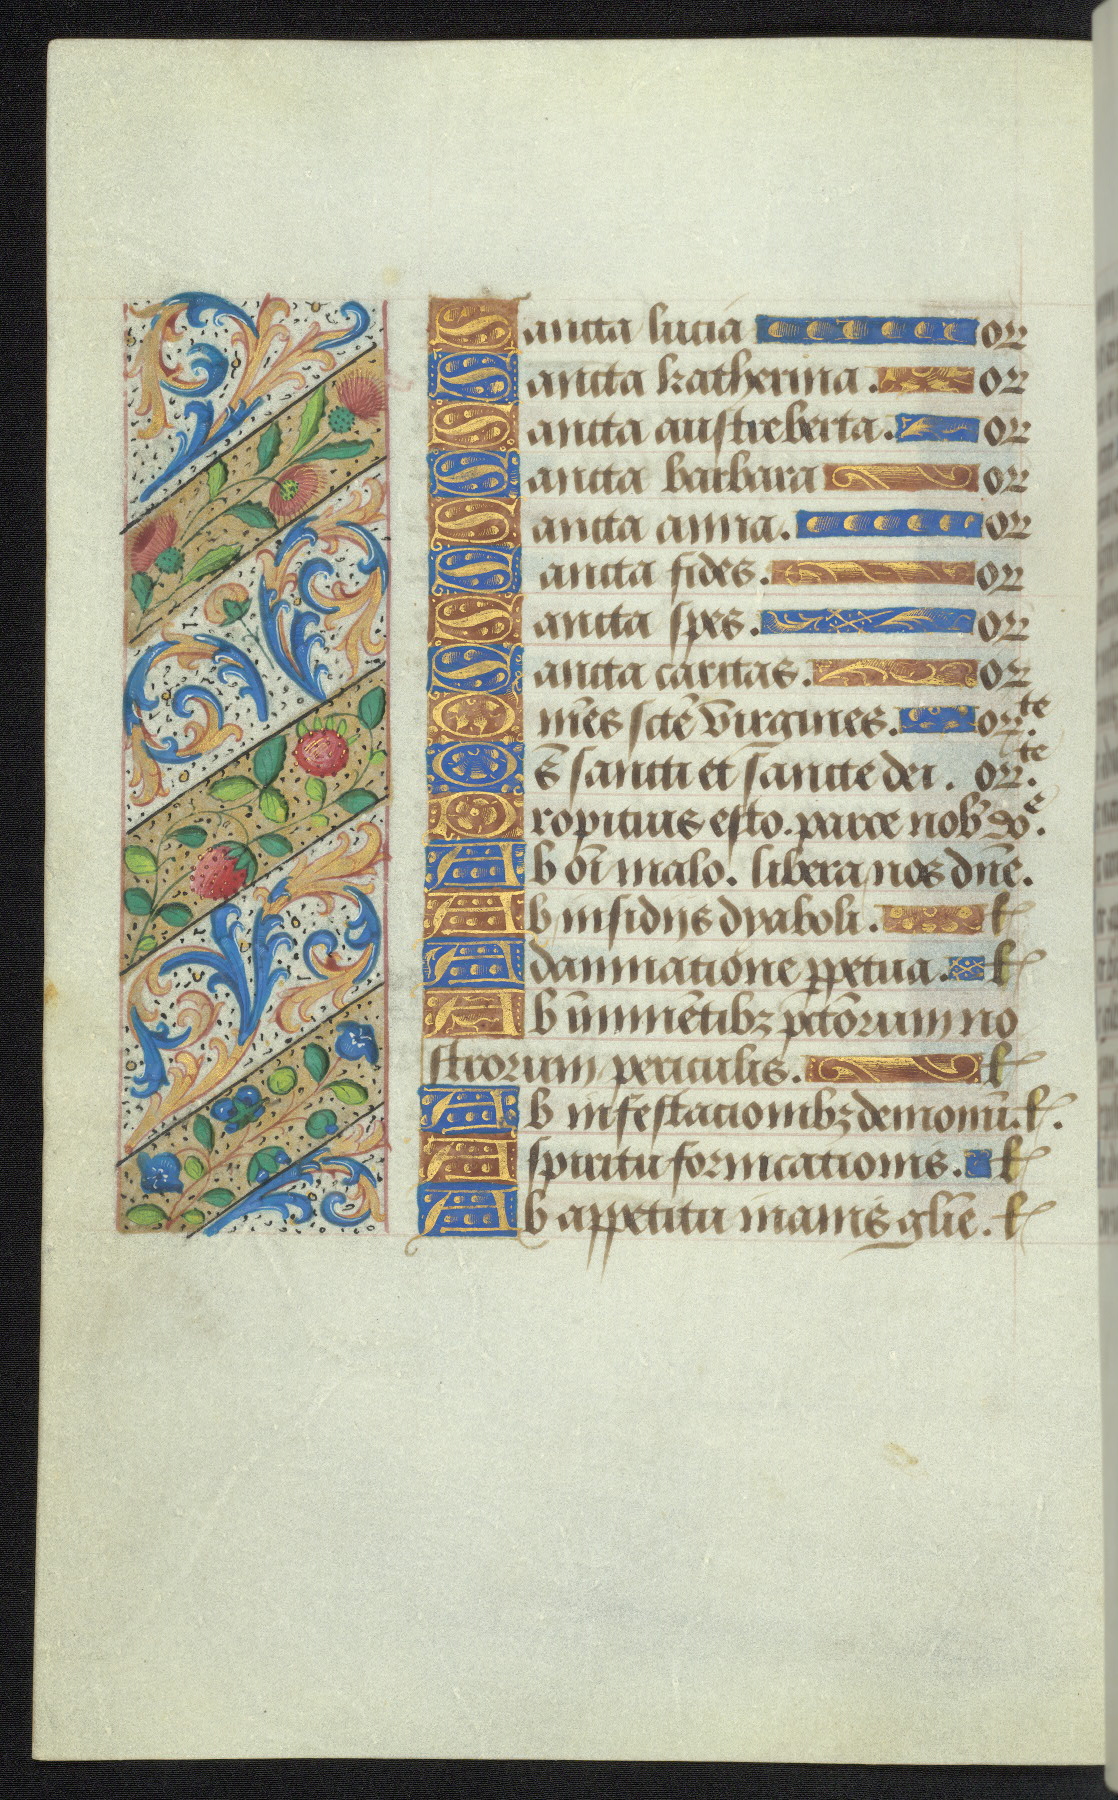 Sancta lucia or
Sancta katherina . or
Sancta austreberta . or
Sancta barbara or
Sancta anna . or
Sancta fides . or
Sancta spes . or
Sancta caritas . or
Om̄es sct̄e virgines . or.te
Om̄s sancti et sancte dei . or.te
Propitius esto . parce nob dn̄e.
Ab om̄i malo . libera nos dn̄e .
Ab insidijs dyaboli . l
A dannatione ꝑpetua . l
Ab im̄inētibꝫ pctōrum no
strorum periculis . l
Ab infestacionibꝫ demonū . l .
A spiritu fornicationis . l
Ab appetitu inanis glīe . l